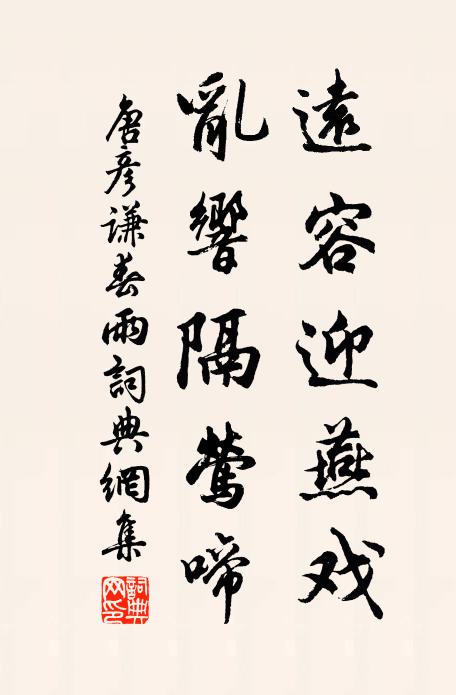 遠容迎燕戏
亂響隔鶯啼
唐彥謙春雨詞典網集
詞典网印